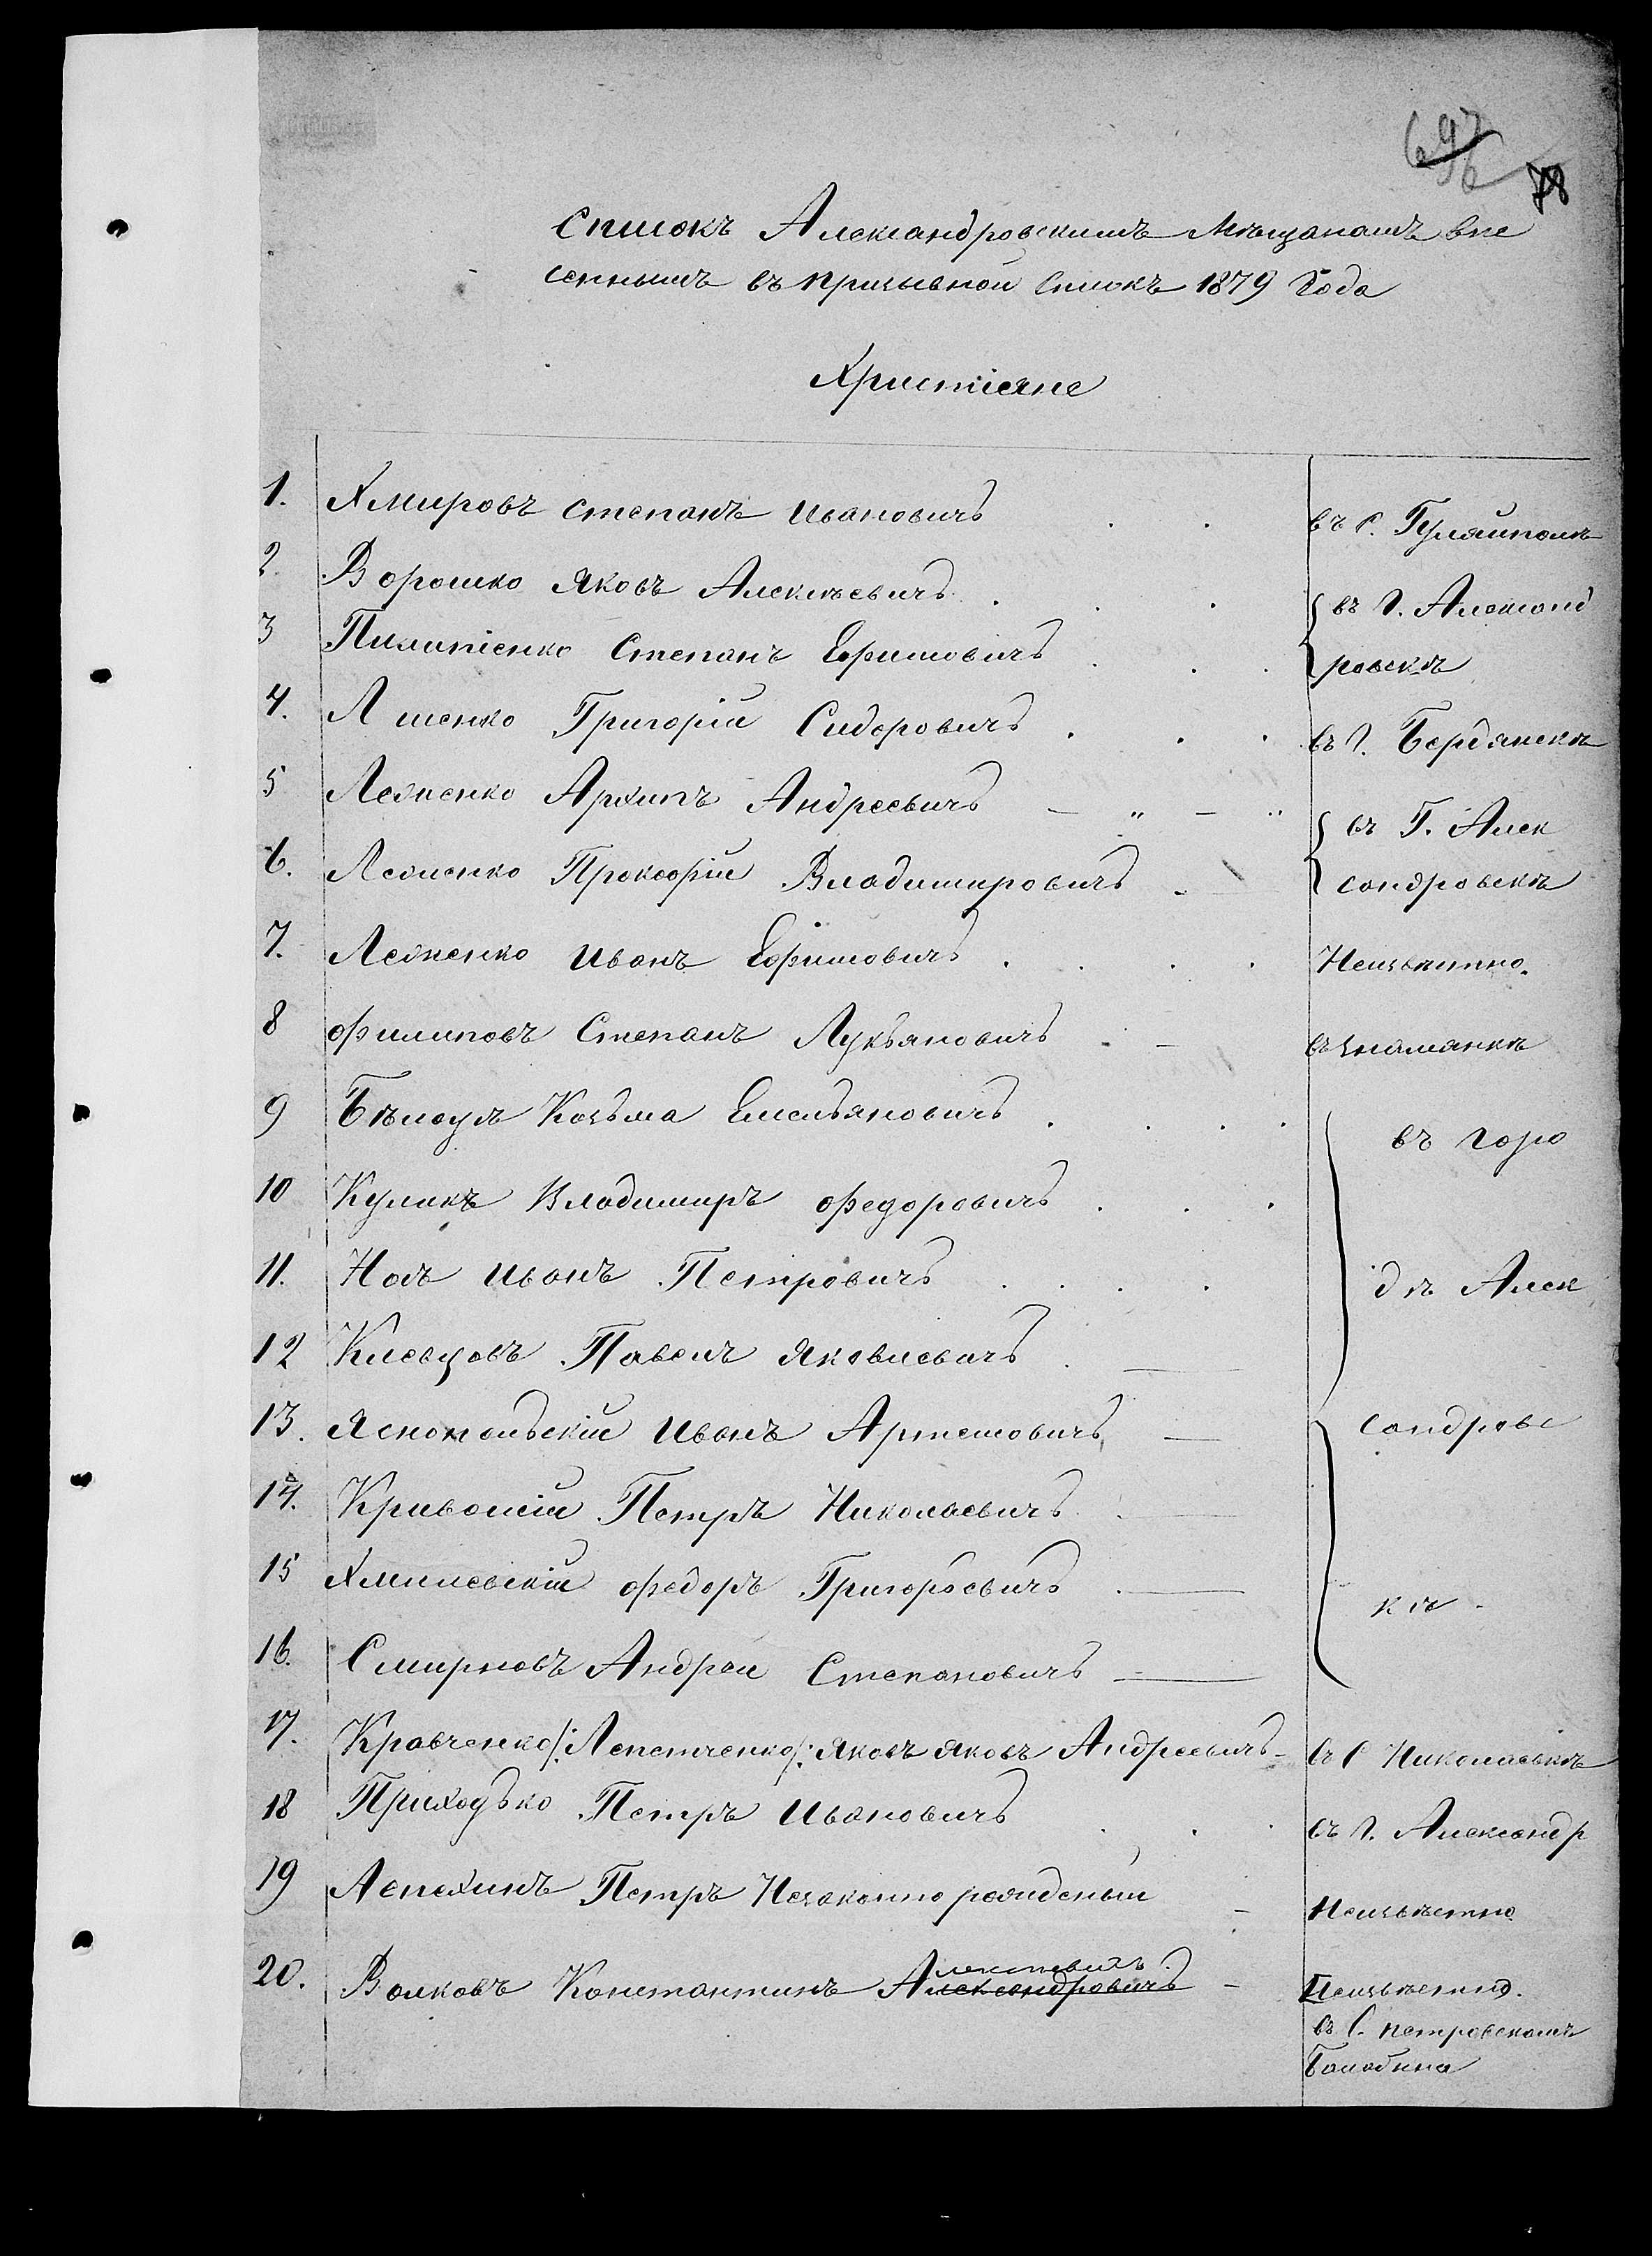 78
Списокъ Александровскимъ Мѣщанамъ вне
сеннымъ въ призывной списокъ 1879 Года
Христіяне
1. Хмировъ Степанъ Ивановичъ въ С. Гуляйполѣ
2 Ворошко Яковъ Алексѣевичъ въ Г. Александ
3 Пилипіенко Степанъ Ефимовичъ ровскѣ
4. Ляшенко Григорій Сидоровичъ въ Г. Бердянскѣ
5 Леженко Архипъ Андреевичъ въ Г. Алек
6. Леженко Прокофій Владимировичъ сандровскѣ
7. Леженко Иванъ Ефимовичъ Неизвѣстно.
8 Филиповъ Степанъ Лукьяновичъ въ Знаменкѣ
9 Бѣлоузъ Козьма Емельяновичъ въ горо
10 Куликъ Владимиръ Федоровичъ
11. Иванъ Петровичъ дѣ Алек
12 Клевцовъ Павелъ Яковлевичъ
13. Яснопольскій Иванъ Артемовичъ сандровс
14. Петръ Николаевичъ
15 Хмилевскій Федоръ Григорьевичъ кѣ
16. Смирновъ Андрей Степановичъ
17. Кравченко /: Лепетченко /: Яковъ Яковъ Андреевичъ въ С Николаевкѣ
18 Приходько Петръ Ивановичъ въ Г. Александр
19 Лепехинъ Петръ Незаконно рожденый Неизвѣстно
20. Волковъ Константинъ Александровичъ Неизвѣстно.
въ С. Петровскомъ